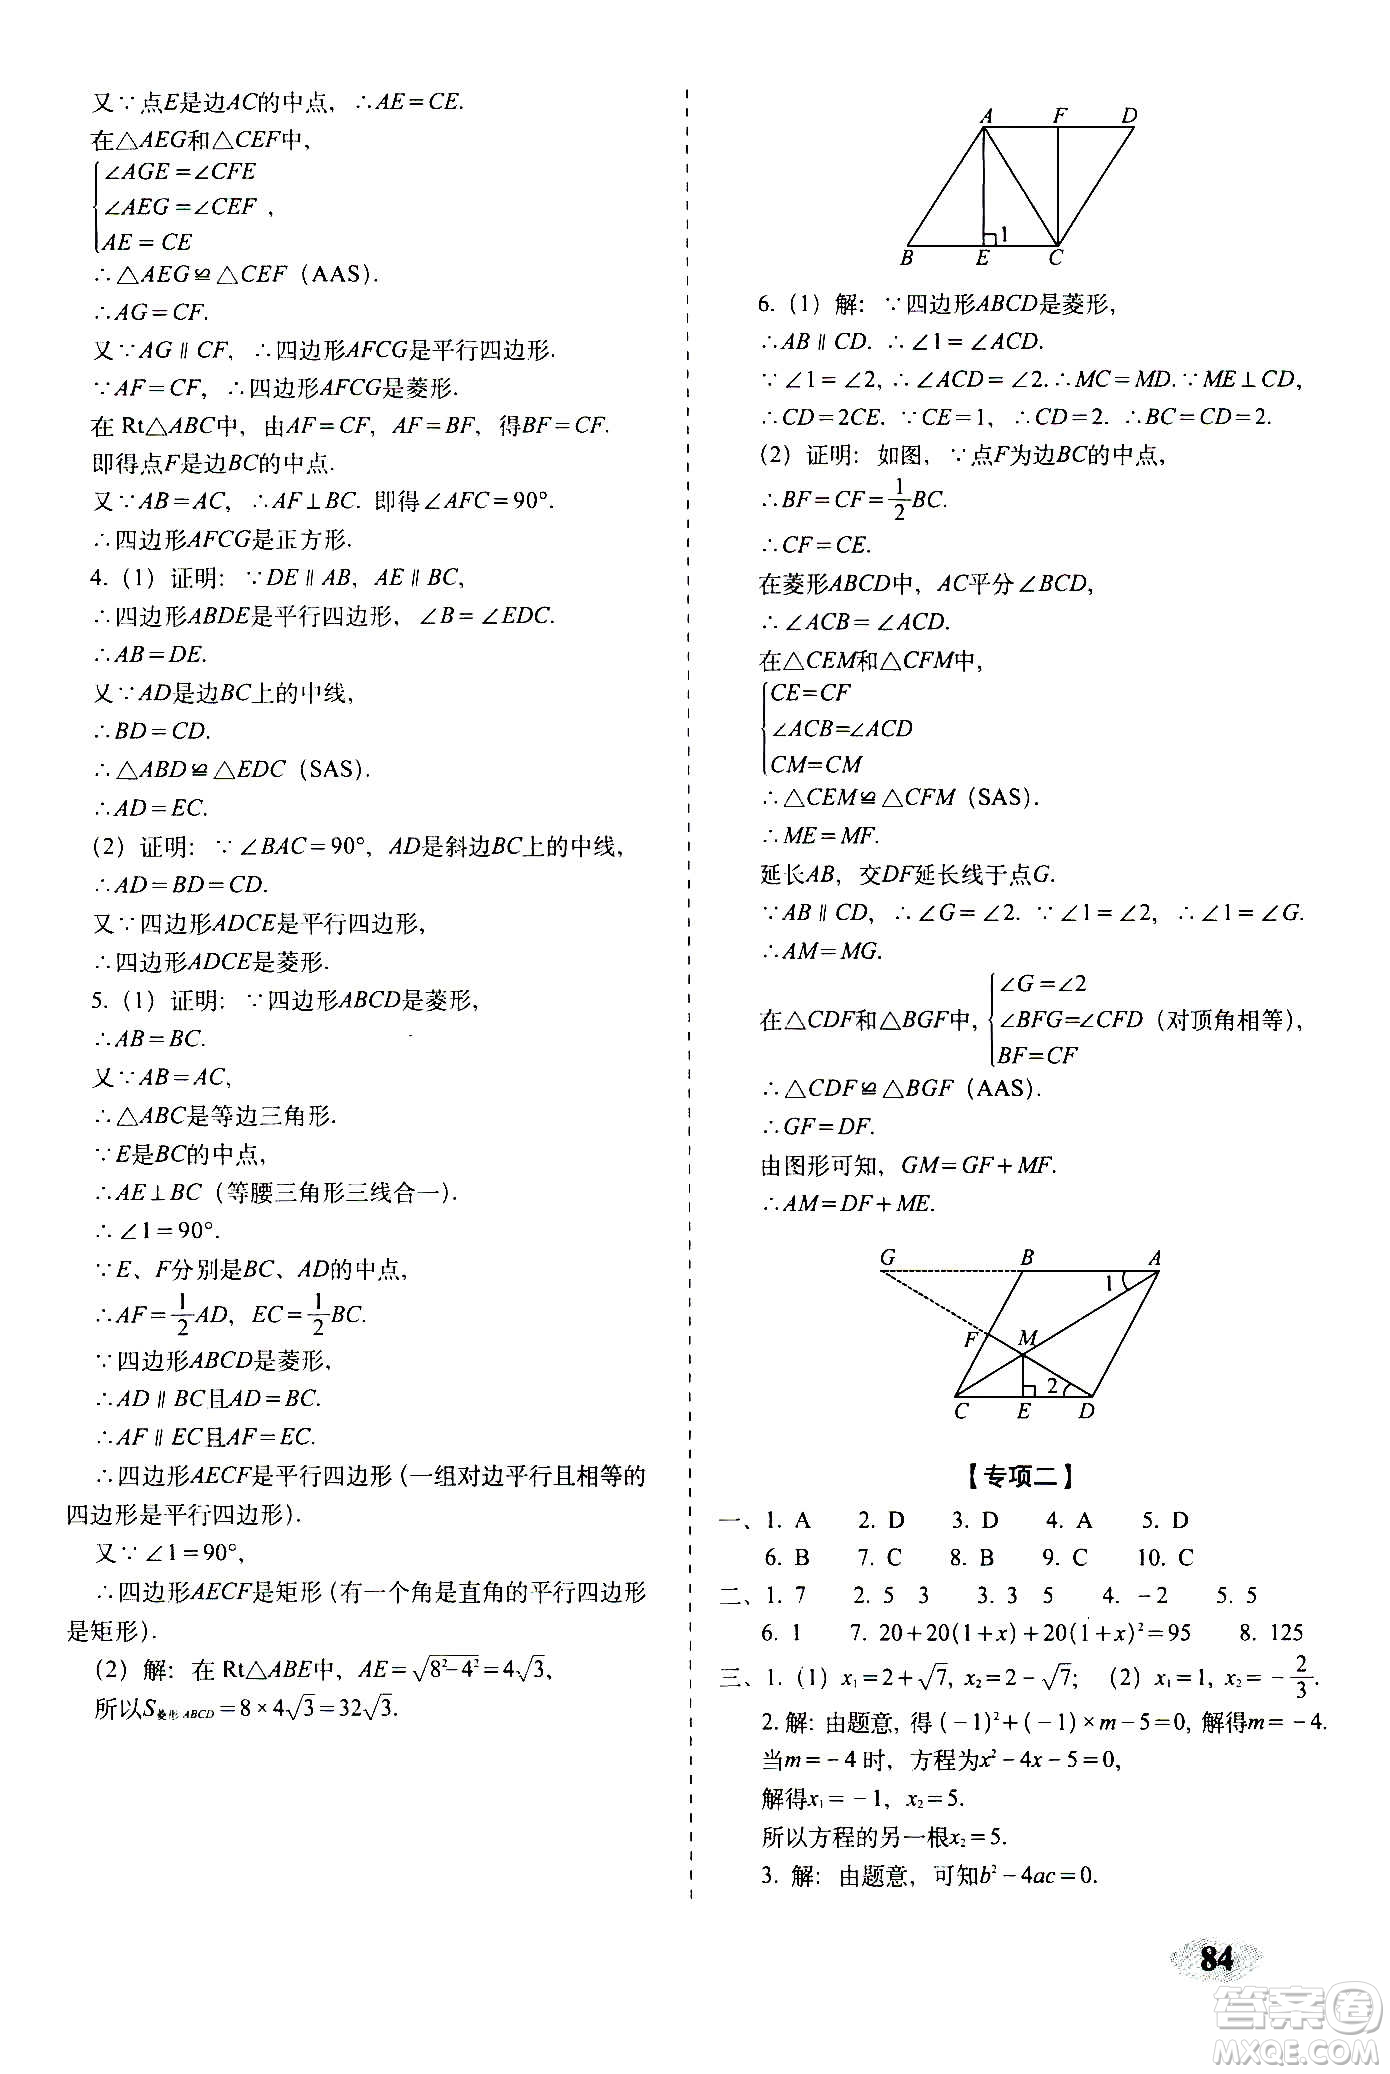 又∵点E是边AC的中点，∴AE=CE.
在△AEG和△CEF中，
∠AGE=∠CFE
∠AEG=∠CEF，
AE=CE
∴△AEG≌△CEF（AAS）.
∴AG=CF.
又∵AG∥CF，∴四边形AFCG是平行四边形.
∵AF=CF，∴四边形AFCG是菱形.
在 Rt△ABC中，由AF=CF，AF=BF，得BF=CF.
即得点F是边BC的中点.
又∵AB=AC，∴AF⊥BC. 即得∠AFC=90°.
∴四边形AFCG是正方形.
4.（1）证明：∵DE∥AB，AE∥BC，
∴四边形ABDE是平行四边形，∠B=∠EDC.
∴AB=DE.
又∵AD是边BC上的中线，
∴BD=CD.
∴△ABD≌△EDC（SAS）.
∴AD=EC.
（2）证明：∵∠BAC=90°，AD是斜边BC上的中线，
∴AD=BD=CD.
又∵四边形ADCE是平行四边形，
∴四边形ADCE是菱形.
5.（1）证明：∵四边形ABCD是菱形，
∴AB=BC.
又∵AB=AC，
∴△ABC是等边三角形.
∵E是BC的中点，
∴AE⊥BC（等腰三角形三线合一）.
∴∠1=90°.
∵E、F分别是BC、AD的中点，
∴AF=1/2AD，EC=1/2BC.
∵四边形ABCD是菱形，
∴AD∥BC且AD=BC.
∴AF∥EC且AF=EC.
∴四边形AECF是平行四边形（一组对边平行且相等的
四边形是平行四边形）.
又∵∠1=90°，
∴四边形AECF是矩形（有一个角是直角的平行四边形
是矩形）.
（2）解：在 Rt△ABE中，AE=√(8²-4²)=4√3，
所以S菱形ABCD=8×4√3=32√3.
A F D
1
B E C
6.（1）解：∵四边形ABCD是菱形，
∴AB∥CD. ∴∠1=∠ACD.
∵∠1=∠2，∴∠ACD=∠2.∴MC=MD.∵ME⊥CD，
∴CD=2CE. ∵CE=1，∴CD=2. ∴BC=CD=2.
（2）证明：如图，∵点F为边BC的中点，
∴BF=CF=1/2BC.
∴CF=CE.
在菱形ABCD中，AC平分∠BCD，
∴∠ACB=∠ACD.
在△CEM和△CFM中，
CE=CF
∠ACB=∠ACD
CM=CM
∴△CEM≌△CFM（SAS）.
∴ME=MF.
延长AB，交DF延长线于点G.
∵AB∥CD，∴∠G=∠2. ∵∠1=∠2，∴∠1=∠G.
∴AM=MG.
∠G=∠2
在△CDF和△BGF中，∠BFG=∠CFD（对顶角相等），
BF=CF
∴△CDF≌△BGF（AAS）.
∴GF=DF.
由图形可知，GM=GF+MF.
∴AM=DF+ME.
G B A
1
F M
2
C E D
【专项二】
一、1. A 2. D 3. D 4. A 5. D
6. B 7. C 8. B 9. C 10. C
二、1. 7 2. 5 3 3. 3 5 4. -2 5. 5
6. 1 7. 20+20(1+x)+20(1+x)²=95 8. 125
三、1.（1）x₁=2+√7，x₂=2-√7；（2）x₁=1，x₂=-2/3.
2.解：由题意，得(-1)²+(-1)×m-5=0，解得m=-4.
当m=-4时，方程为x²-4x-5=0，
解得x₁=-1，x₂=5.
所以方程的另一根x₂=5.
3. 解：由题意，可知b²-4ac=0.
84
答案圈
MXQE.COM